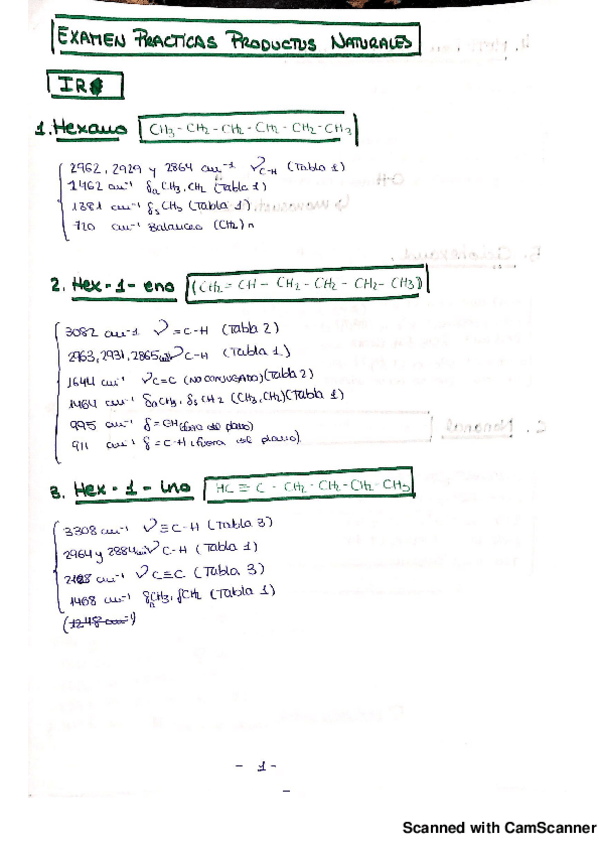 EXAMEN PRACTICAS PRODUCTUS NATURALES
IR
1. Hexano CH3-CH2-CH2-CH2-CH2-CH3
2962, 2929 y 2864 cm-1 νC-H (Tabla 1)
1462 cm-1 δa CH3, CH2 (Tabla 1)
1381 cm-1 δs CH3 (Tabla 1)
720 cm-1 Balanceo (CH2)n
2. Hex-1-eno (CH2=CH-CH2-CH2-CH2-CH3)
3082 cm-1 ν=C-H (Tabla 2)
2963, 2931, 2865 cm-1 ν C-H (Tabla 1)
1644 cm-1 νC=C (NO CONJUGADO) (Tabla 2)
1464 cm-1 δaCH3, δs CH2 (CH3, CH2) (Tabla 1)
995 cm-1 δ=CH (fuera del plano)
911 cm-1 δ=C-H (fuera del plano)
3. Hex-1-ino HC≡C-CH2-CH2-CH2-CH3
3308 cm-1 ν≡C-H (Tabla 3)
2964 y 2884 cm-1 ν C-H (Tabla 1)
cm-1 νC≡C (Tabla 3)
1468 cm-1 δaCH3, δCH2 (Tabla 1)
(1248 cm-1)
- 1 -
Scanned with CamScanner